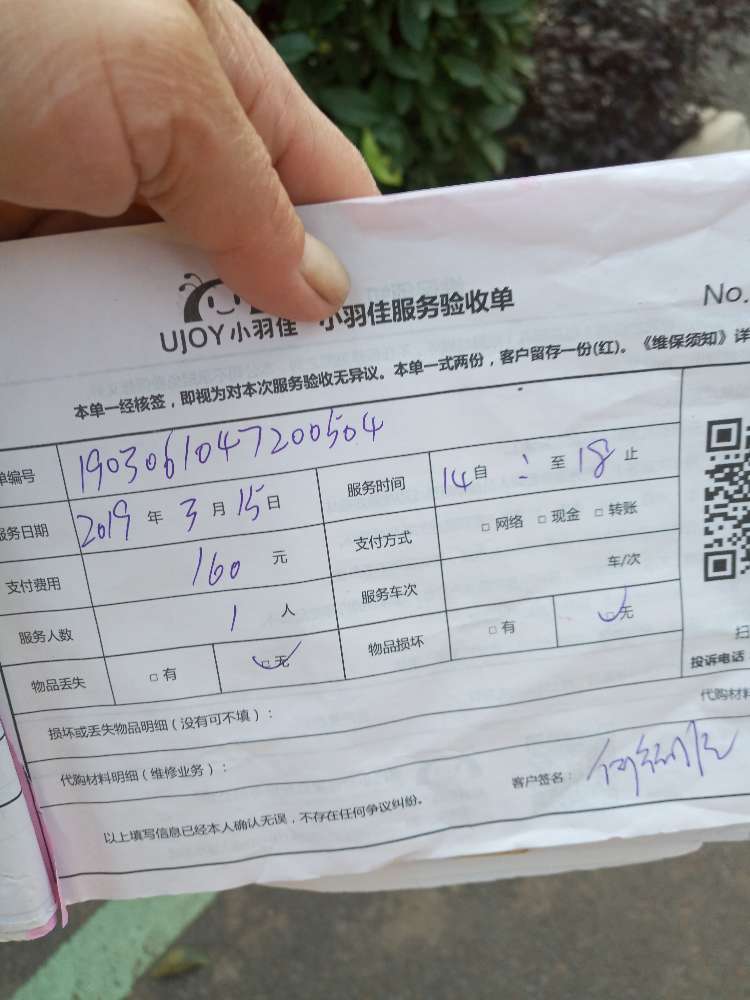 UJOY小羽佳 小羽佳服务验收单 No.
本单一经核签，即视为对本次服务验收无异议。本单一式两份，客户留存一份(红)。《维保须知》详
单编号 1903061047200504
服务日期 2019 年 3 月 15 日 服务时间 14 自 : 至 18 止
支付费用 160 元 支付方式 □ 网络 □ 现金 □ 转账
服务人数 1 人 服务车次 车/次
物品丢失 □ 有 □ 无 物品损坏 □ 有 □ 无
扫
投诉电话
损坏或丢失物品明细（没有可不填）：
代购材料
代购材料明细（维修业务）：
客户签名：
以上填写信息已经本人确认无误，不存在任何争议纠纷。